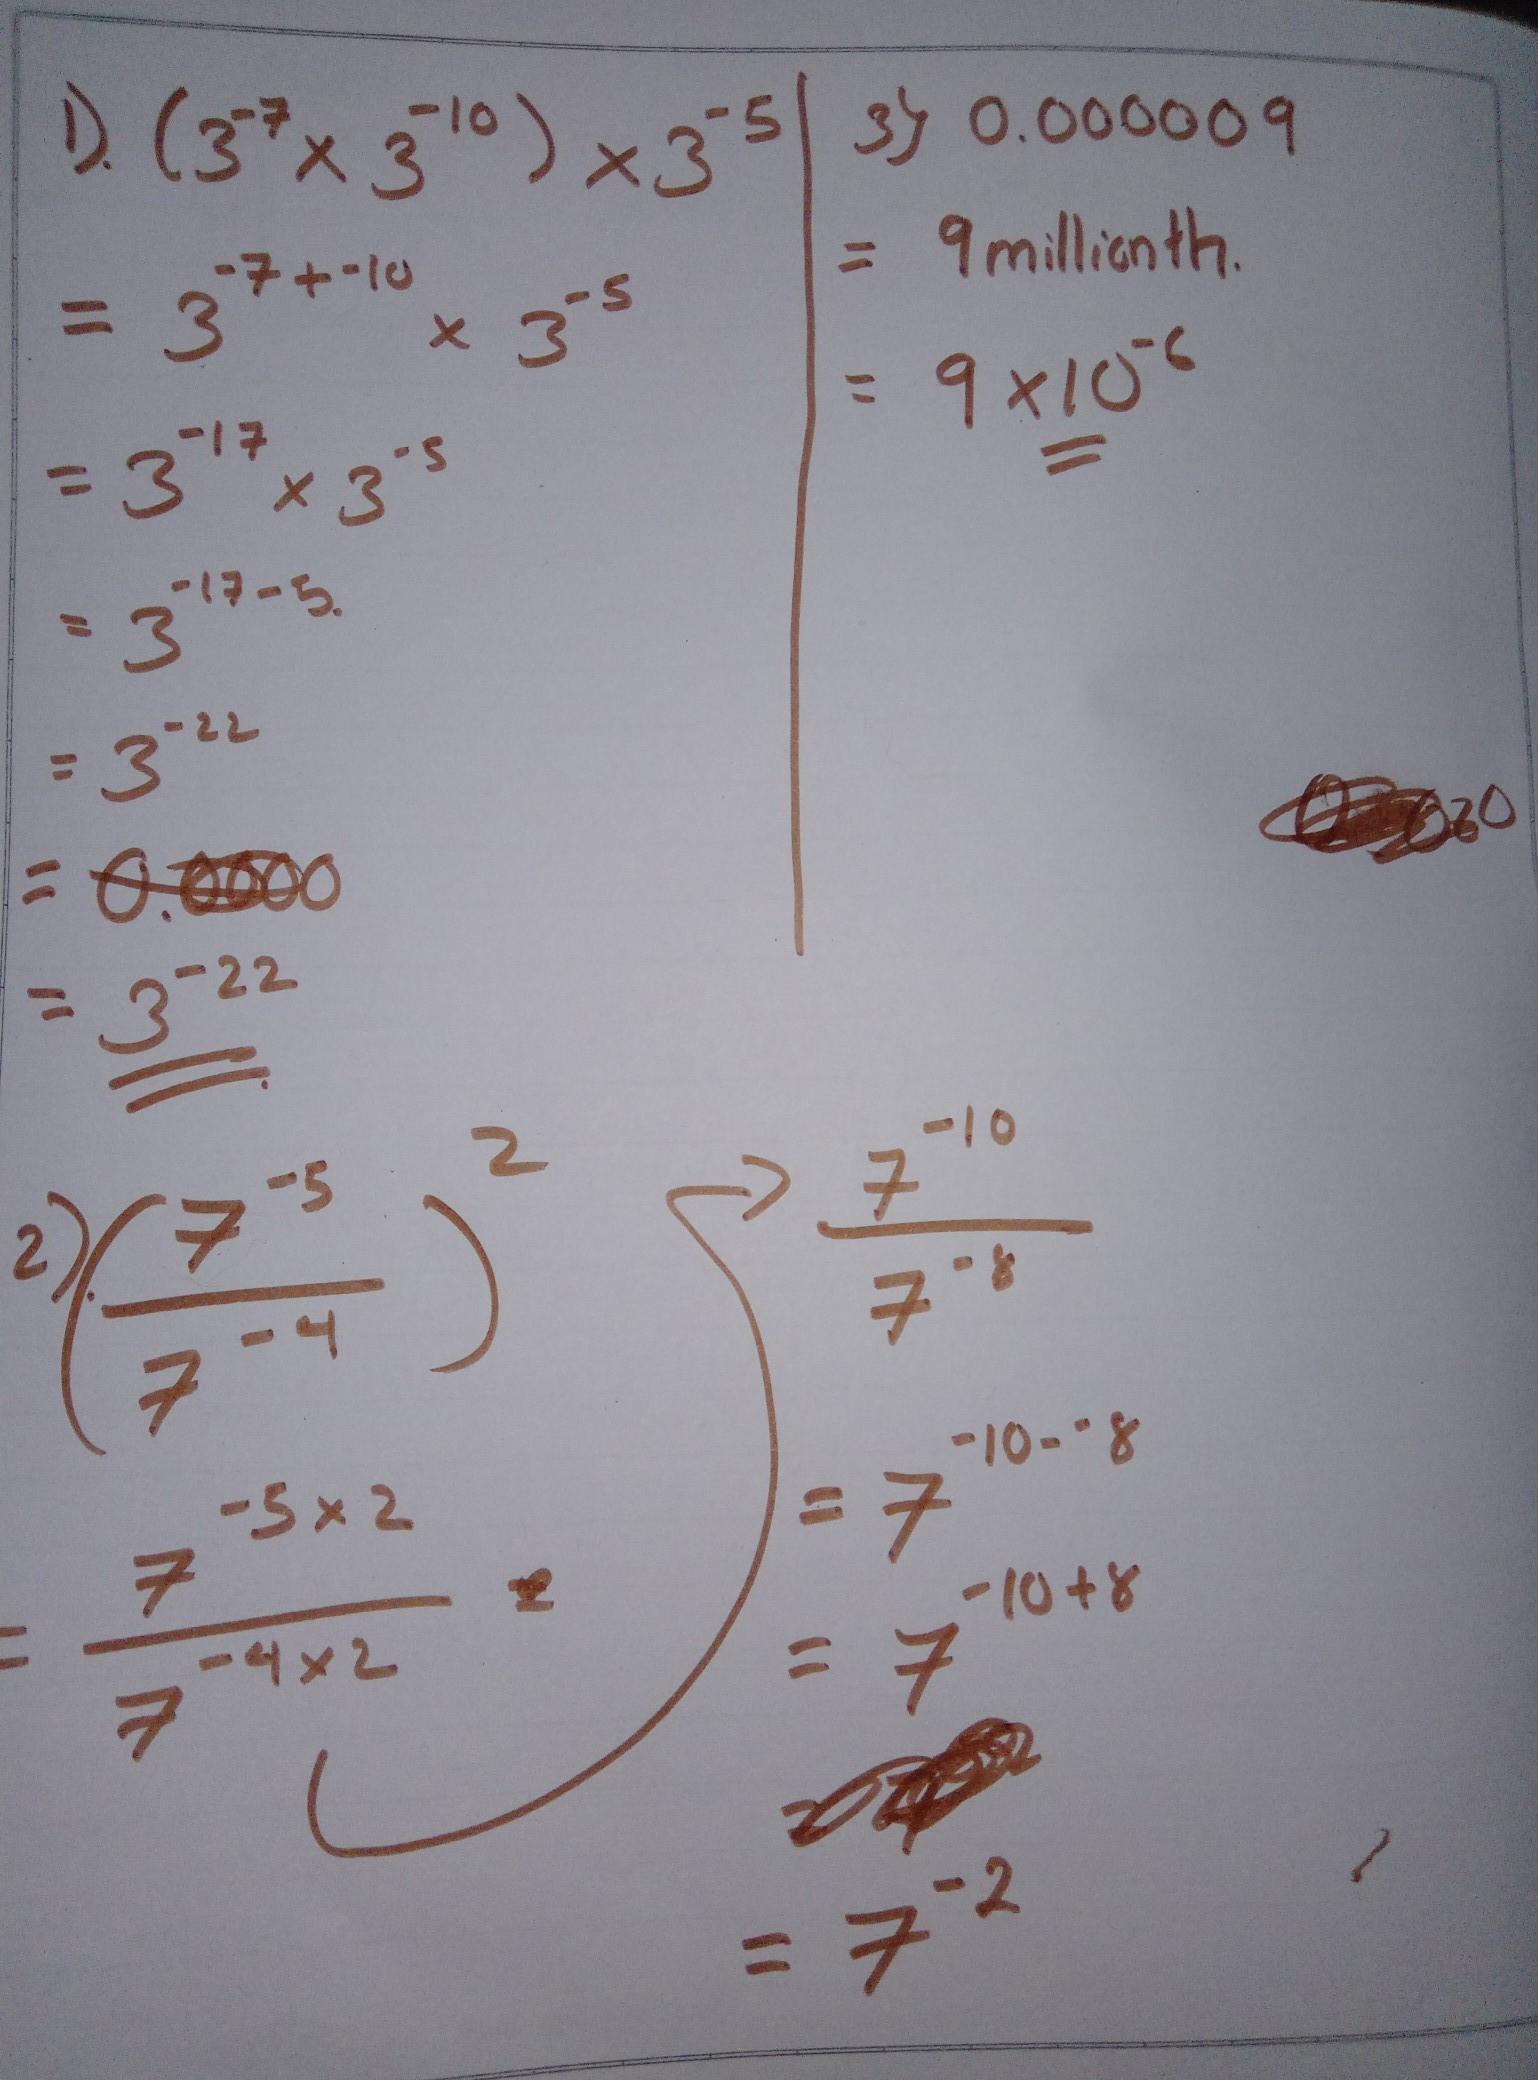 1). (3⁻⁷ × 3⁻¹⁰) × 3⁻⁵
= 3⁻⁷⁺⁻¹⁰ × 3⁻⁵
= 3⁻¹⁷ × 3⁻⁵
= 3⁻¹⁷⁻⁵.
= 3⁻²²
= 0.0000
= 3⁻²²
3) 0.000009
= 9 millionth.
= 9 × 10⁻⁶
2). (7⁻⁵ / 7⁻⁴)²
= 7⁻⁵ˣ² / 7⁻⁴ˣ²
7⁻¹⁰ / 7⁻⁸
= 7⁻¹⁰⁻⁻⁸
= 7⁻¹⁰⁺⁸
= 7⁻²